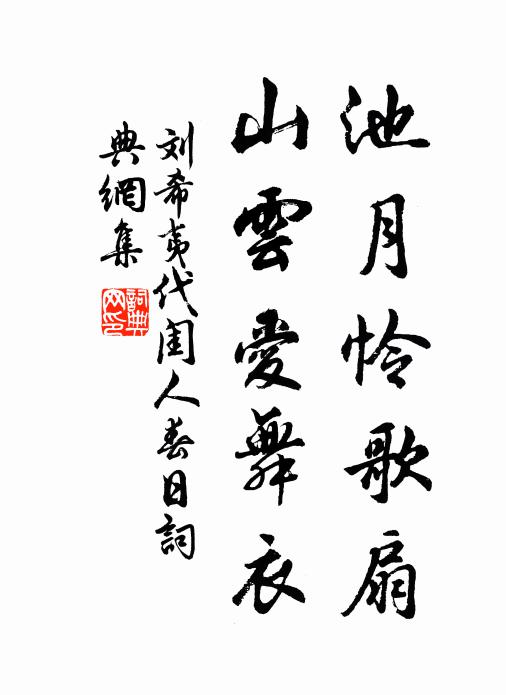 池月怜歌扇
山雲愛舞衣
刘希夷代闺人春日詞
典網集
詞典
网印